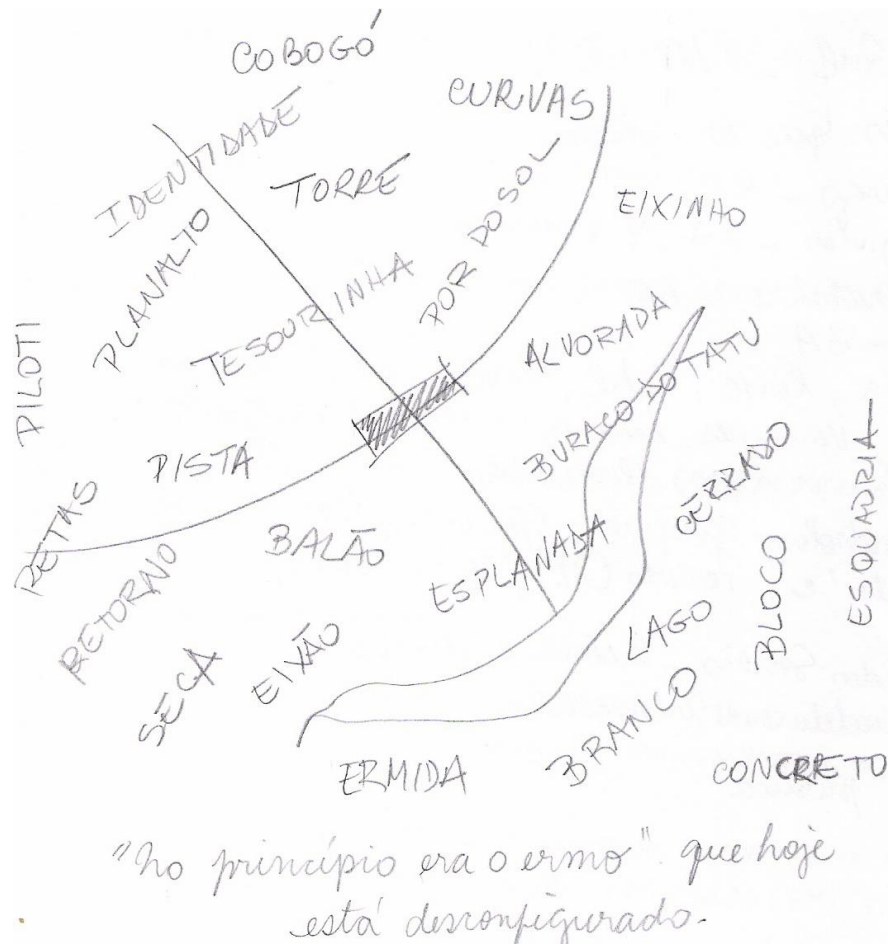 COBOGÓ
CURVAS
IDENTIDADE
TORRE
EIXINHO
PLANALTO
POR DO SOL
TESOURINHA
ALVORADA
PILOTI
BURACO DO TATU
PISTA
CERRADO
ESQUADRIA
RETAS
BALÃO
ESPLANADA
RETORNO
BLOCO
LAGO
EIXÃO
SECA
BRANCO
ERMIDA
CONCRETO
"no princípio era o ermo" que hoje
está desconfigurado.